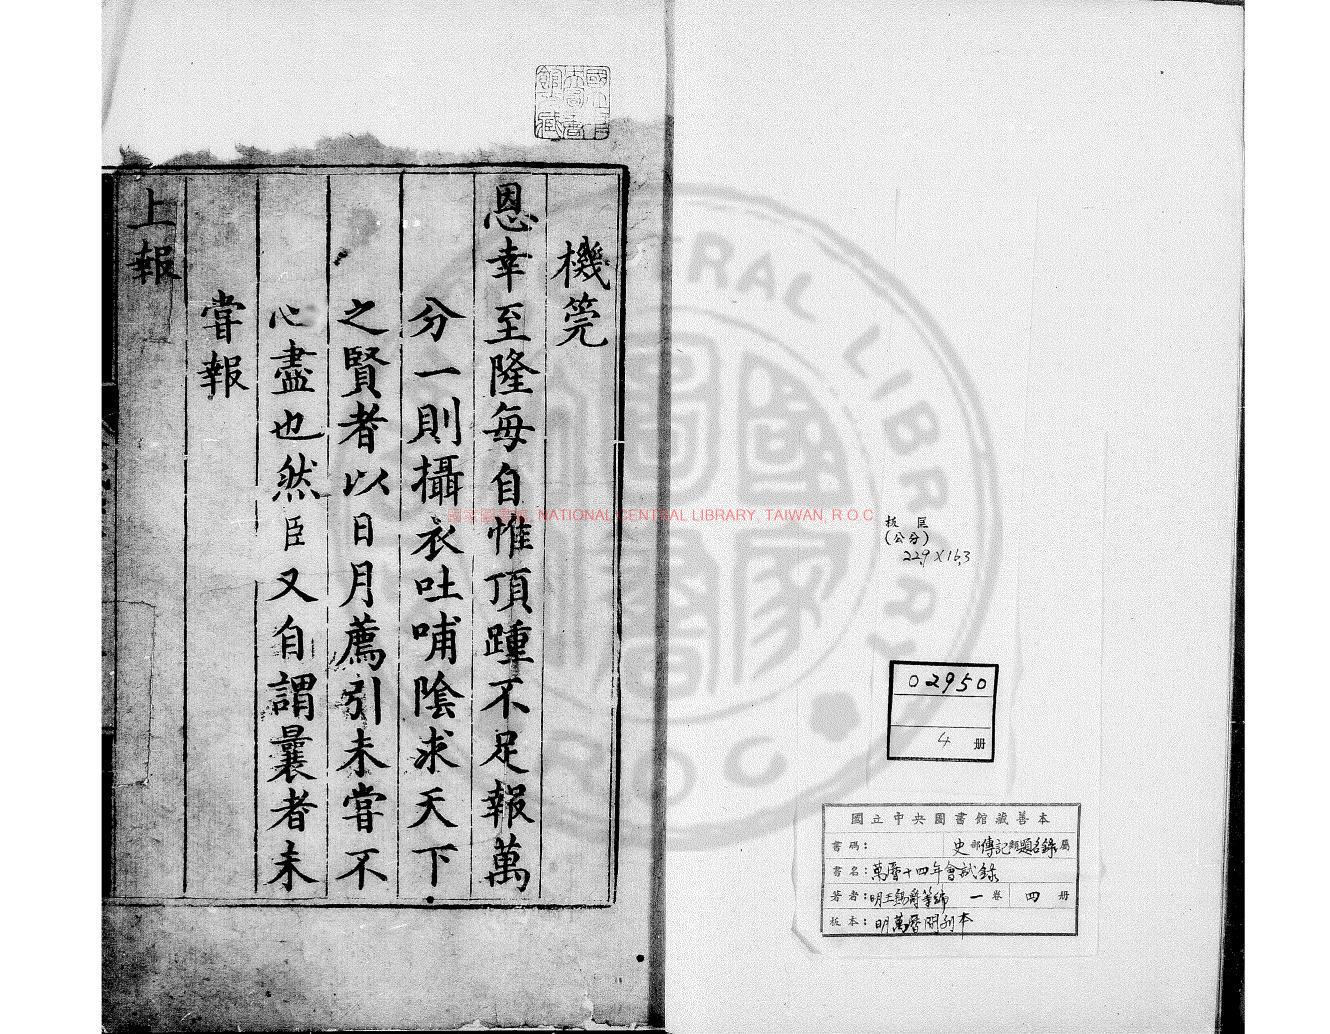 機筦
恩幸至隆每自惟頂踵不足報萬
分一則攝衣吐哺陰求天下
之賢者以日月薦引未嘗不
心盡也然臣又自謂曩者未
嘗報
上報
國家圖書館, NATIONAL CENTRAL LIBRARY, TAIWAN, R.O.C
CENTRAL LIBRARY
R O C
國家圖書
板匡
(公分)
22.9X16.3
02950
4 册
國立中央圖書館藏善本
書碼: 史部傳記類題名錄屬
書名:萬曆十四年會試錄
著者:明王錫爵等編 一卷 四册
板本:明萬曆間刊本